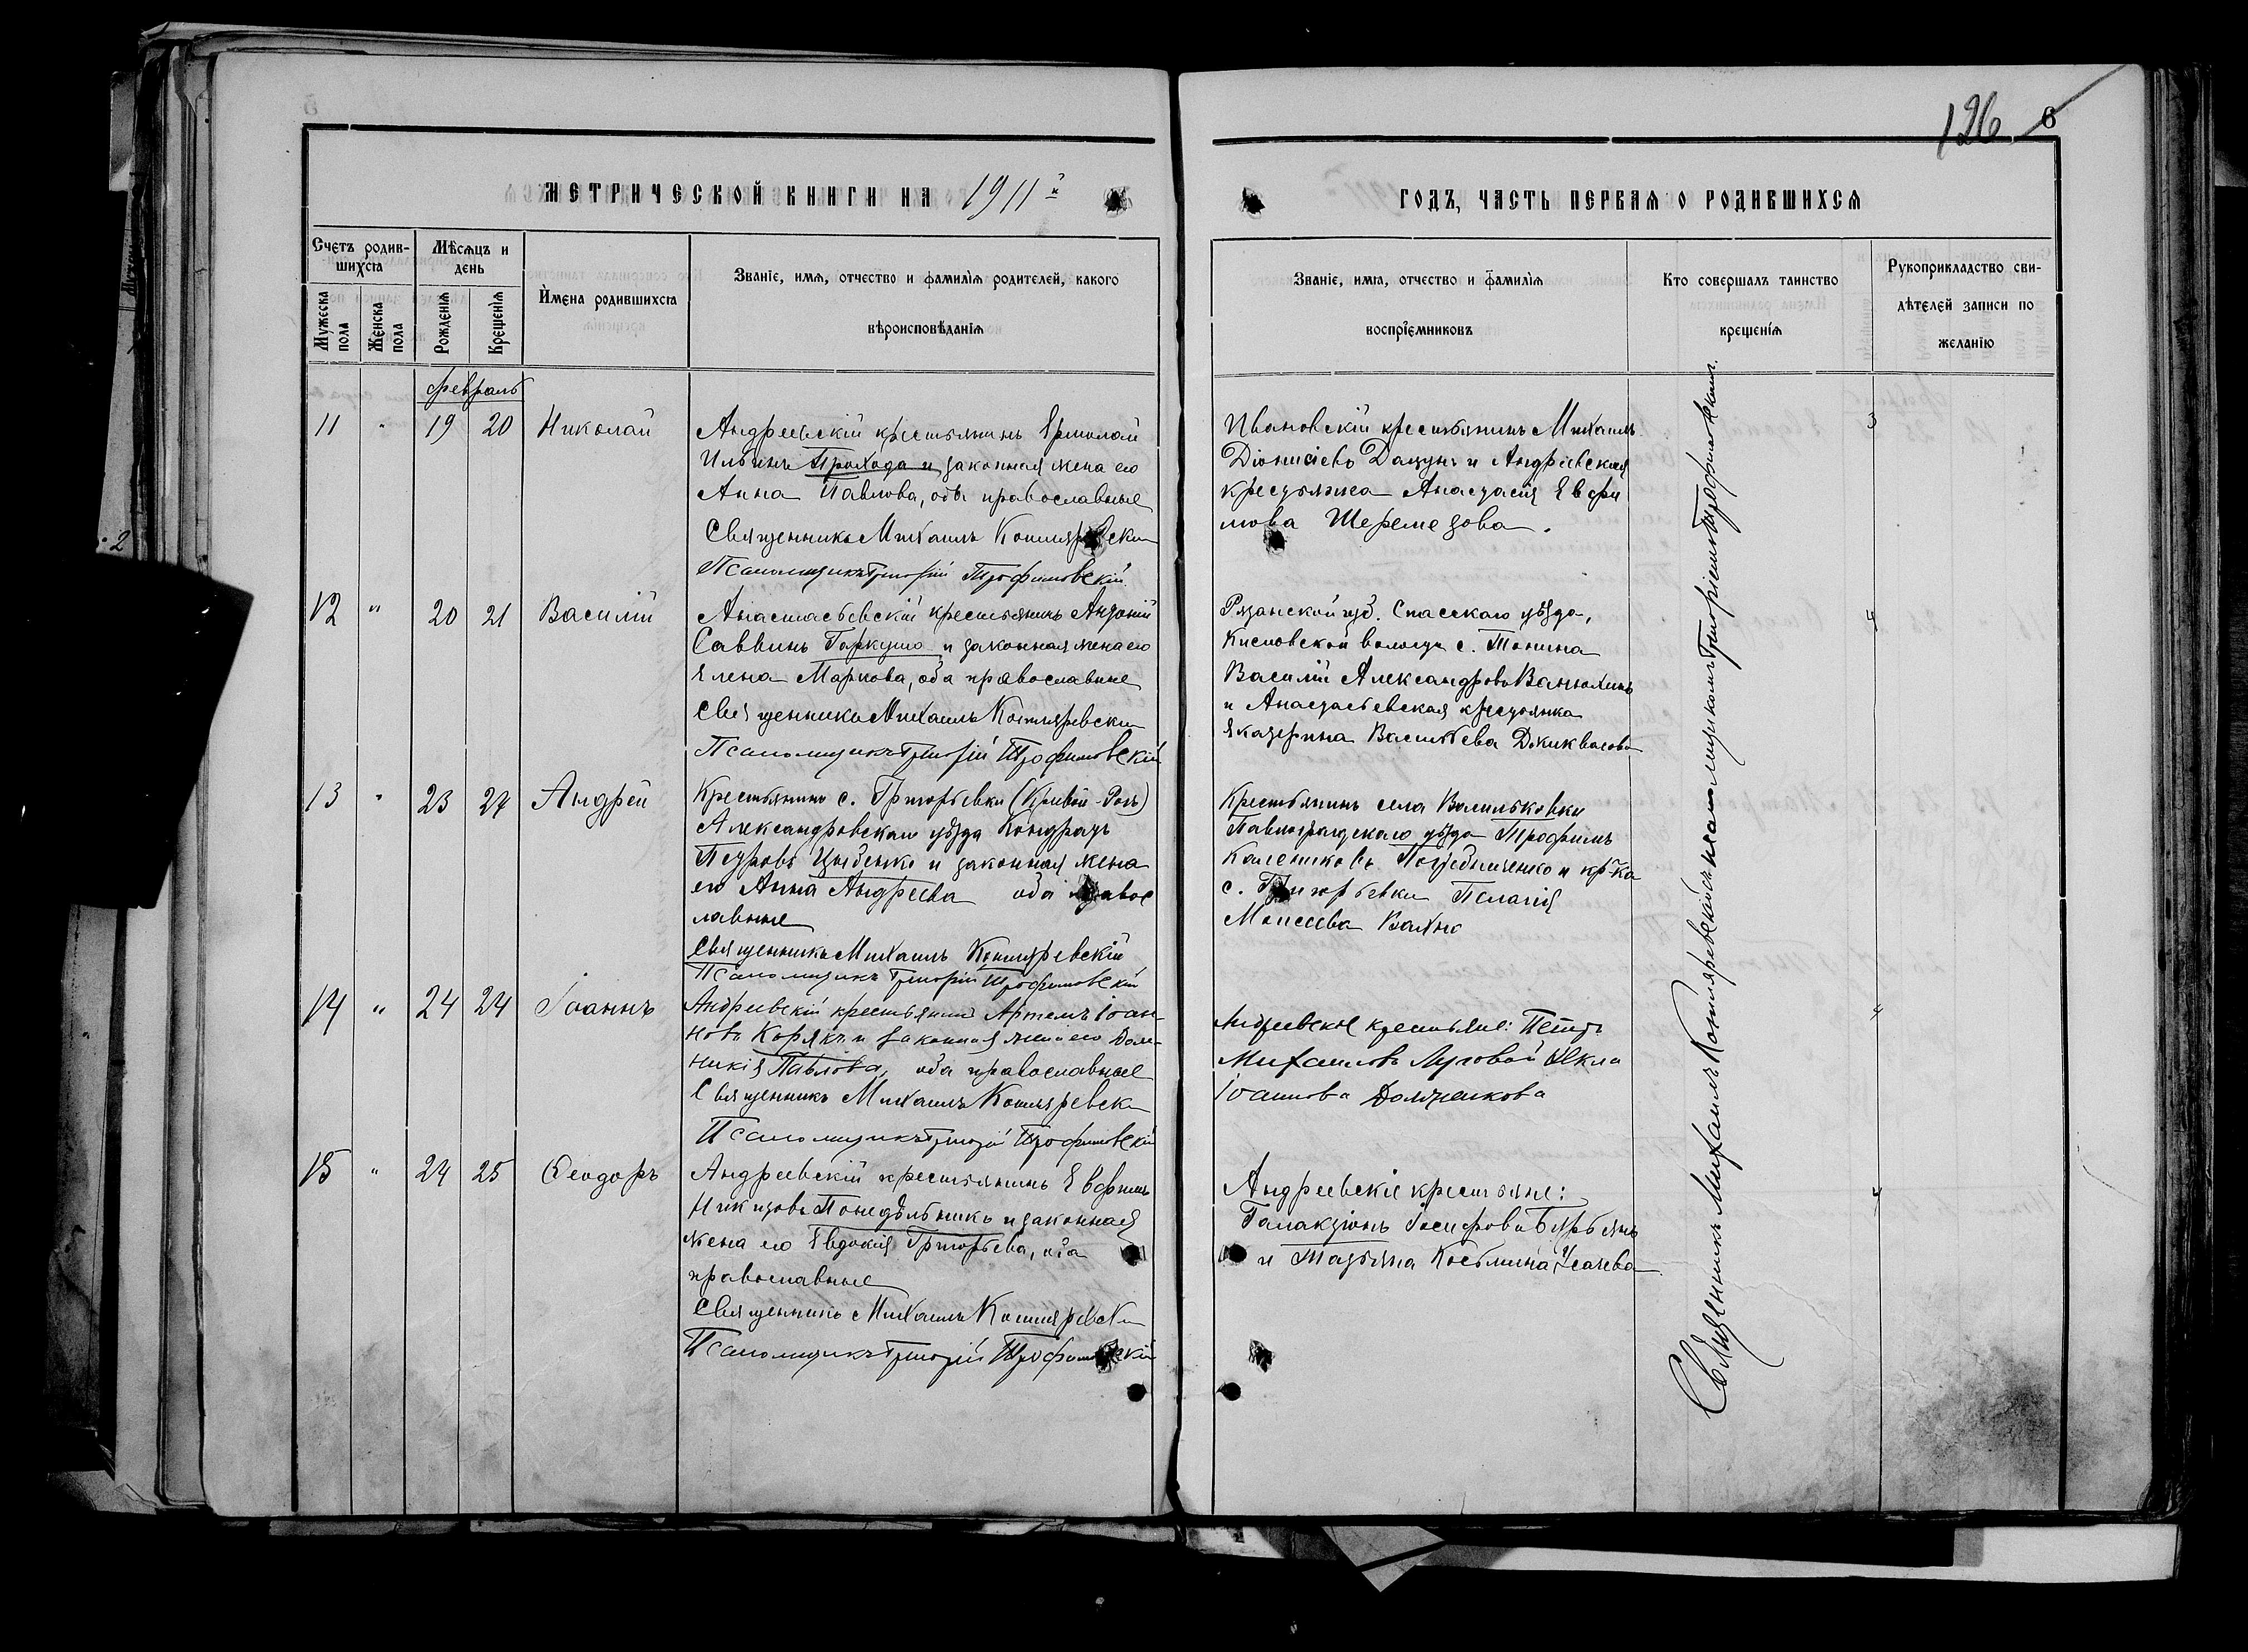 126 6
МЕТРИЧЕСКОЙ КНИГИ НА 1911
ГОДЪ, ЧАСТЬ ПЕРВАЯ О РОДИВШИХСЯ
Счетъ родив-
шихся
Мѣсяцъ и
день
Имена родившихся
Званіе, имя, отчество и фамилія родителей, какого
вѣроисповѣданія
Мужеска
пола
Женска
пола
Рожденія
Крещенія
Званіе, имя, отчество и фамилія
воспріемниковъ
Кто совершалъ таинство
крещенія
Рукоприкладство сви-
дѣтелей записи по
желанію
февраль
11 " 19 20 Николай
Андреевскій крестьянинъ Ермолай
Ильинъ Прохода и законная жена его
Анна Павлова, оба православные
Священникъ Михаилъ Котляревскій
Псаломщикъ Григорій Трофимовскій
Ивановскій крестьянинъ Михаилъ
Діонисіевъ Дацунъ и Андреевская
крестьянка Анастасія Евфи
мова Шереметова.
12 " 20 21 Василій
Анастасьевскій крестьянинъ Антоній
Саввинъ Гаркуша и законная жена его
Елена Маркова, оба православные
Священникъ Михаилъ Котляревскій
Псаломщикъ Григорій Трофимовскій
Рязанской губ. Спасскаго уѣзда,
волости с. Тонина
Василій Александровъ Ванюхинъ
и Анастасьевская крестьянка
Екатерина Васильева
13 " 23 24 Андрей
Крестьянинъ с. Григорьевки (Кривой-Рогъ)
Александровскаго уѣзда Кондратъ
Петровъ Цыбенко и законная жена
его Анна Андреева оба правос
лавные
Священникъ Михаилъ Котляревскій
Псаломщикъ Григорій Трофимовскій
Крестьянинъ села Васильковки
Павлоградскаго уѣзда Трофимъ
Калениковъ и кр-ка
с. Григорьевки Пелагія
Моисеева
14 " 24 24 Іоаннъ
Андреевскій крестьянинъ Артемъ Іоан-
новъ Корякъ и законная жена его Дом-
никія Павлова, оба православные
Священникъ Михаилъ Котляревскій
Псаломщикъ Григорій Трофимовскій
Андреевскіе крестьяне: Петръ
Михаиловъ Луговой Ѳекла
Іоаннова Долженкова
15 " 24 25 Ѳеодоръ
Андреевскій крестьянинъ Евфимъ
Никитовъ Понедѣльникъ и законная
жена его Евдокія Григорьева, оба
православные
Священникъ Михаилъ Котляревскій
Псаломщикъ Григорій Трофимовскій
Андреевскіе крестьяне:
Галактіонъ Іосифовъ
и Татьяна Косьмина Усачева
Священникъ Михаилъ Котляревскій съ псаломщикомъ Григоріемъ Трофимовскимъ.